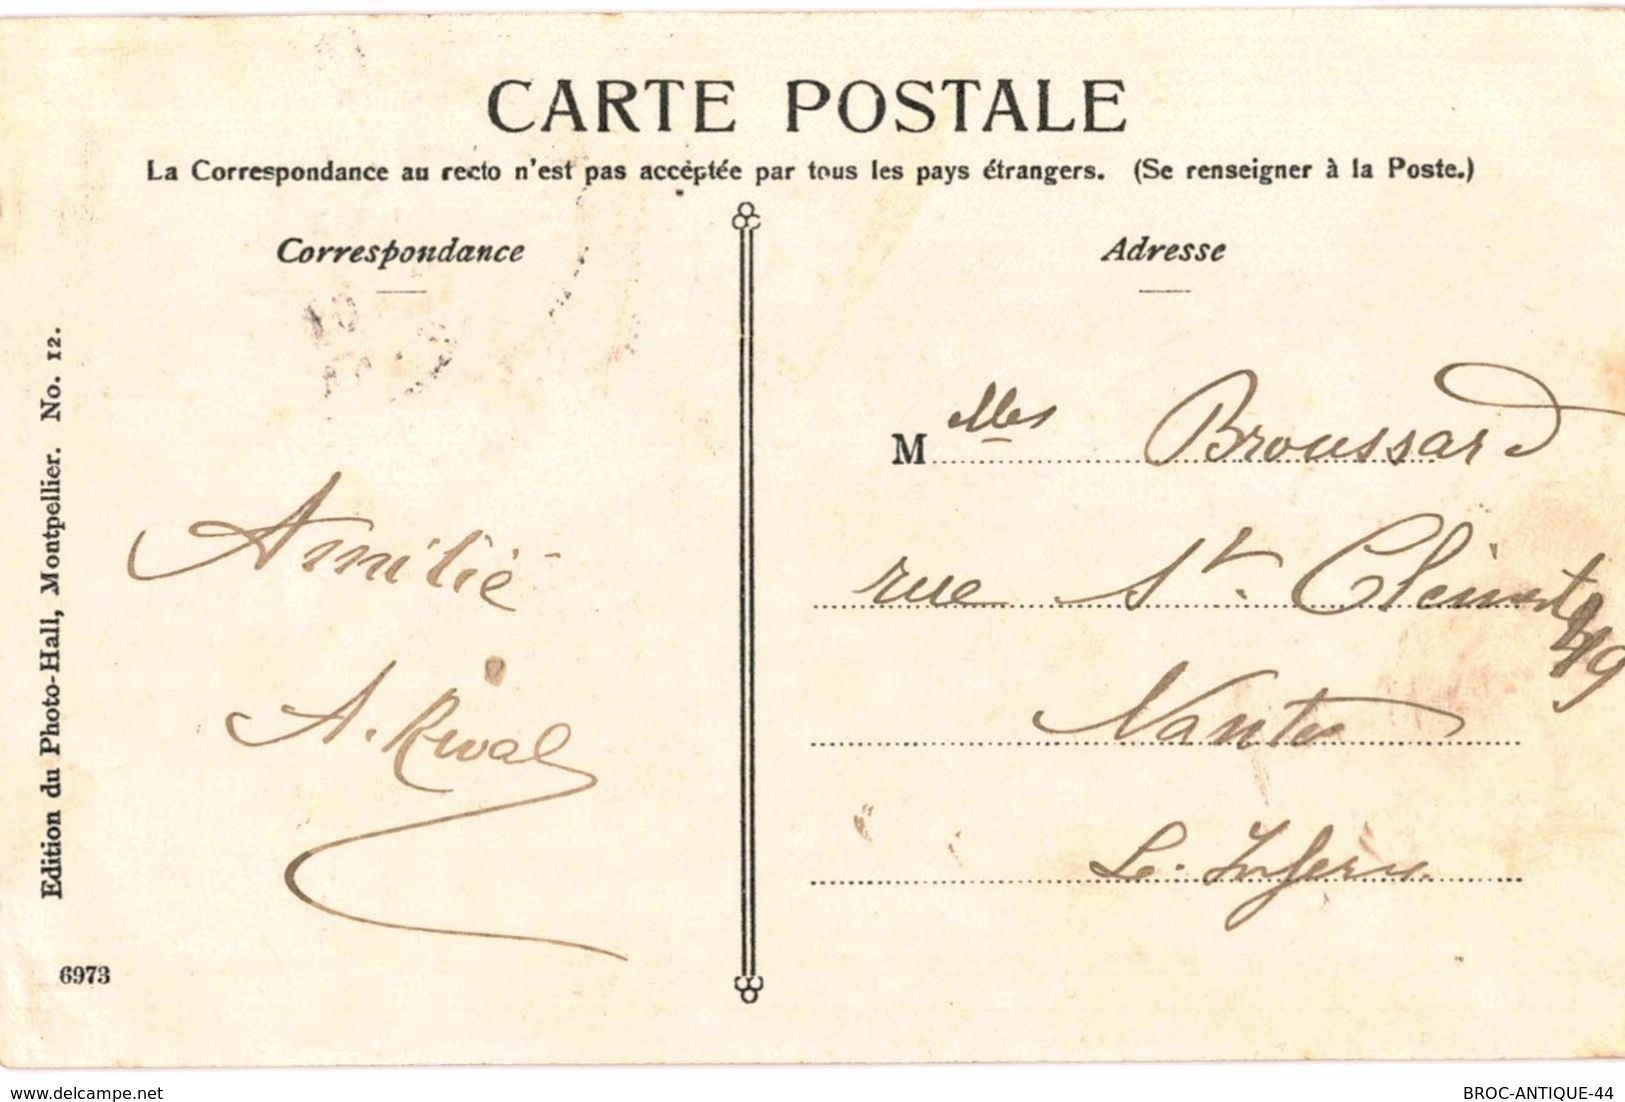 CARTE POSTALE
La Correspondance au recto n'est pas acceptée par tous les pays étrangers. (Se renseigner à la Poste.)
Correspondance
Adresse
Edition du Photo-Hall, Montpellier. No. 12.
6973
Amitié
A. Rival
Mlles Broussard
rue St. Clément
49
Nantes
L. Infere.
delcampe.net
BROC-ANTIQUE-44